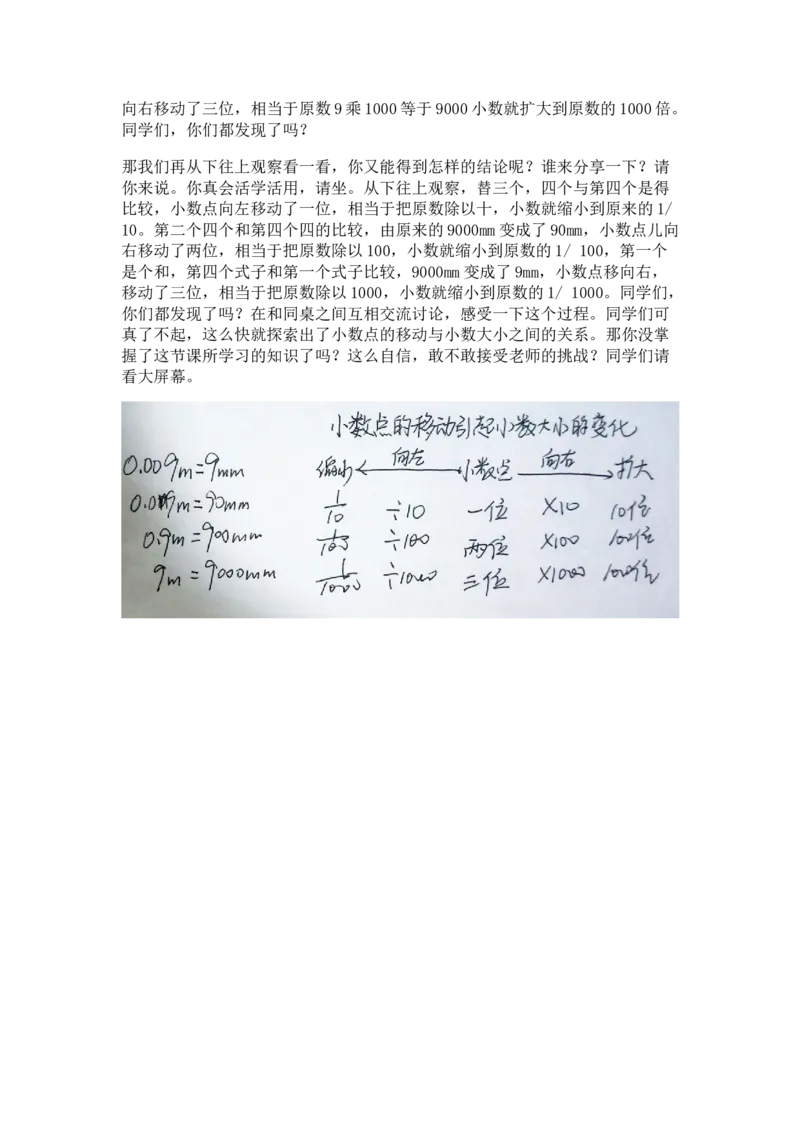 向右移动了三位，相当于原数9乘1000等于9000小数就扩大到原数的1000倍。
同学们，你们都发现了吗？
那我们再从下往上观察看一看，你又能得到怎样的结论呢？谁来分享一下？请
你来说。你真会活学活用，请坐。从下往上观察，替三个，四个与第四个是得
比较，小数点向左移动了一位，相当于把原数除以十，小数就缩小到原来的1/
10。第二个四个和第四个四的比较，由原来的9000mm变成了90mm，小数点儿向
右移动了两位，相当于把原数除以100，小数就缩小到原数的1/ 100，第一个
是个和，第四个式子和第一个式子比较，9000mm变成了9mm，小数点移向右，
移动了三位，相当于把原数除以1000，小数就缩小到原数的1/ 1000。同学们，
你们都发现了吗？在和同桌之间互相交流讨论，感受一下这个过程。同学们可
真了不起，这么快就探索出了小数点的移动与小数大小之间的关系。那你没掌
握了这节课所学习的知识了吗？这么自信，敢不敢接受老师的挑战？同学们请
看大屏幕。
小数点的移动引起小数大小的变化
0.009m=9mm 缩小 向左 小数点 向右 扩大
0.09m=90mm 1/10 ÷10 一位 ×10 10倍
0.9m=900mm 1/100 ÷100 两位 ×100 100倍
9m=9000mm 1/1000 ÷1000 三位 ×1000 1000倍